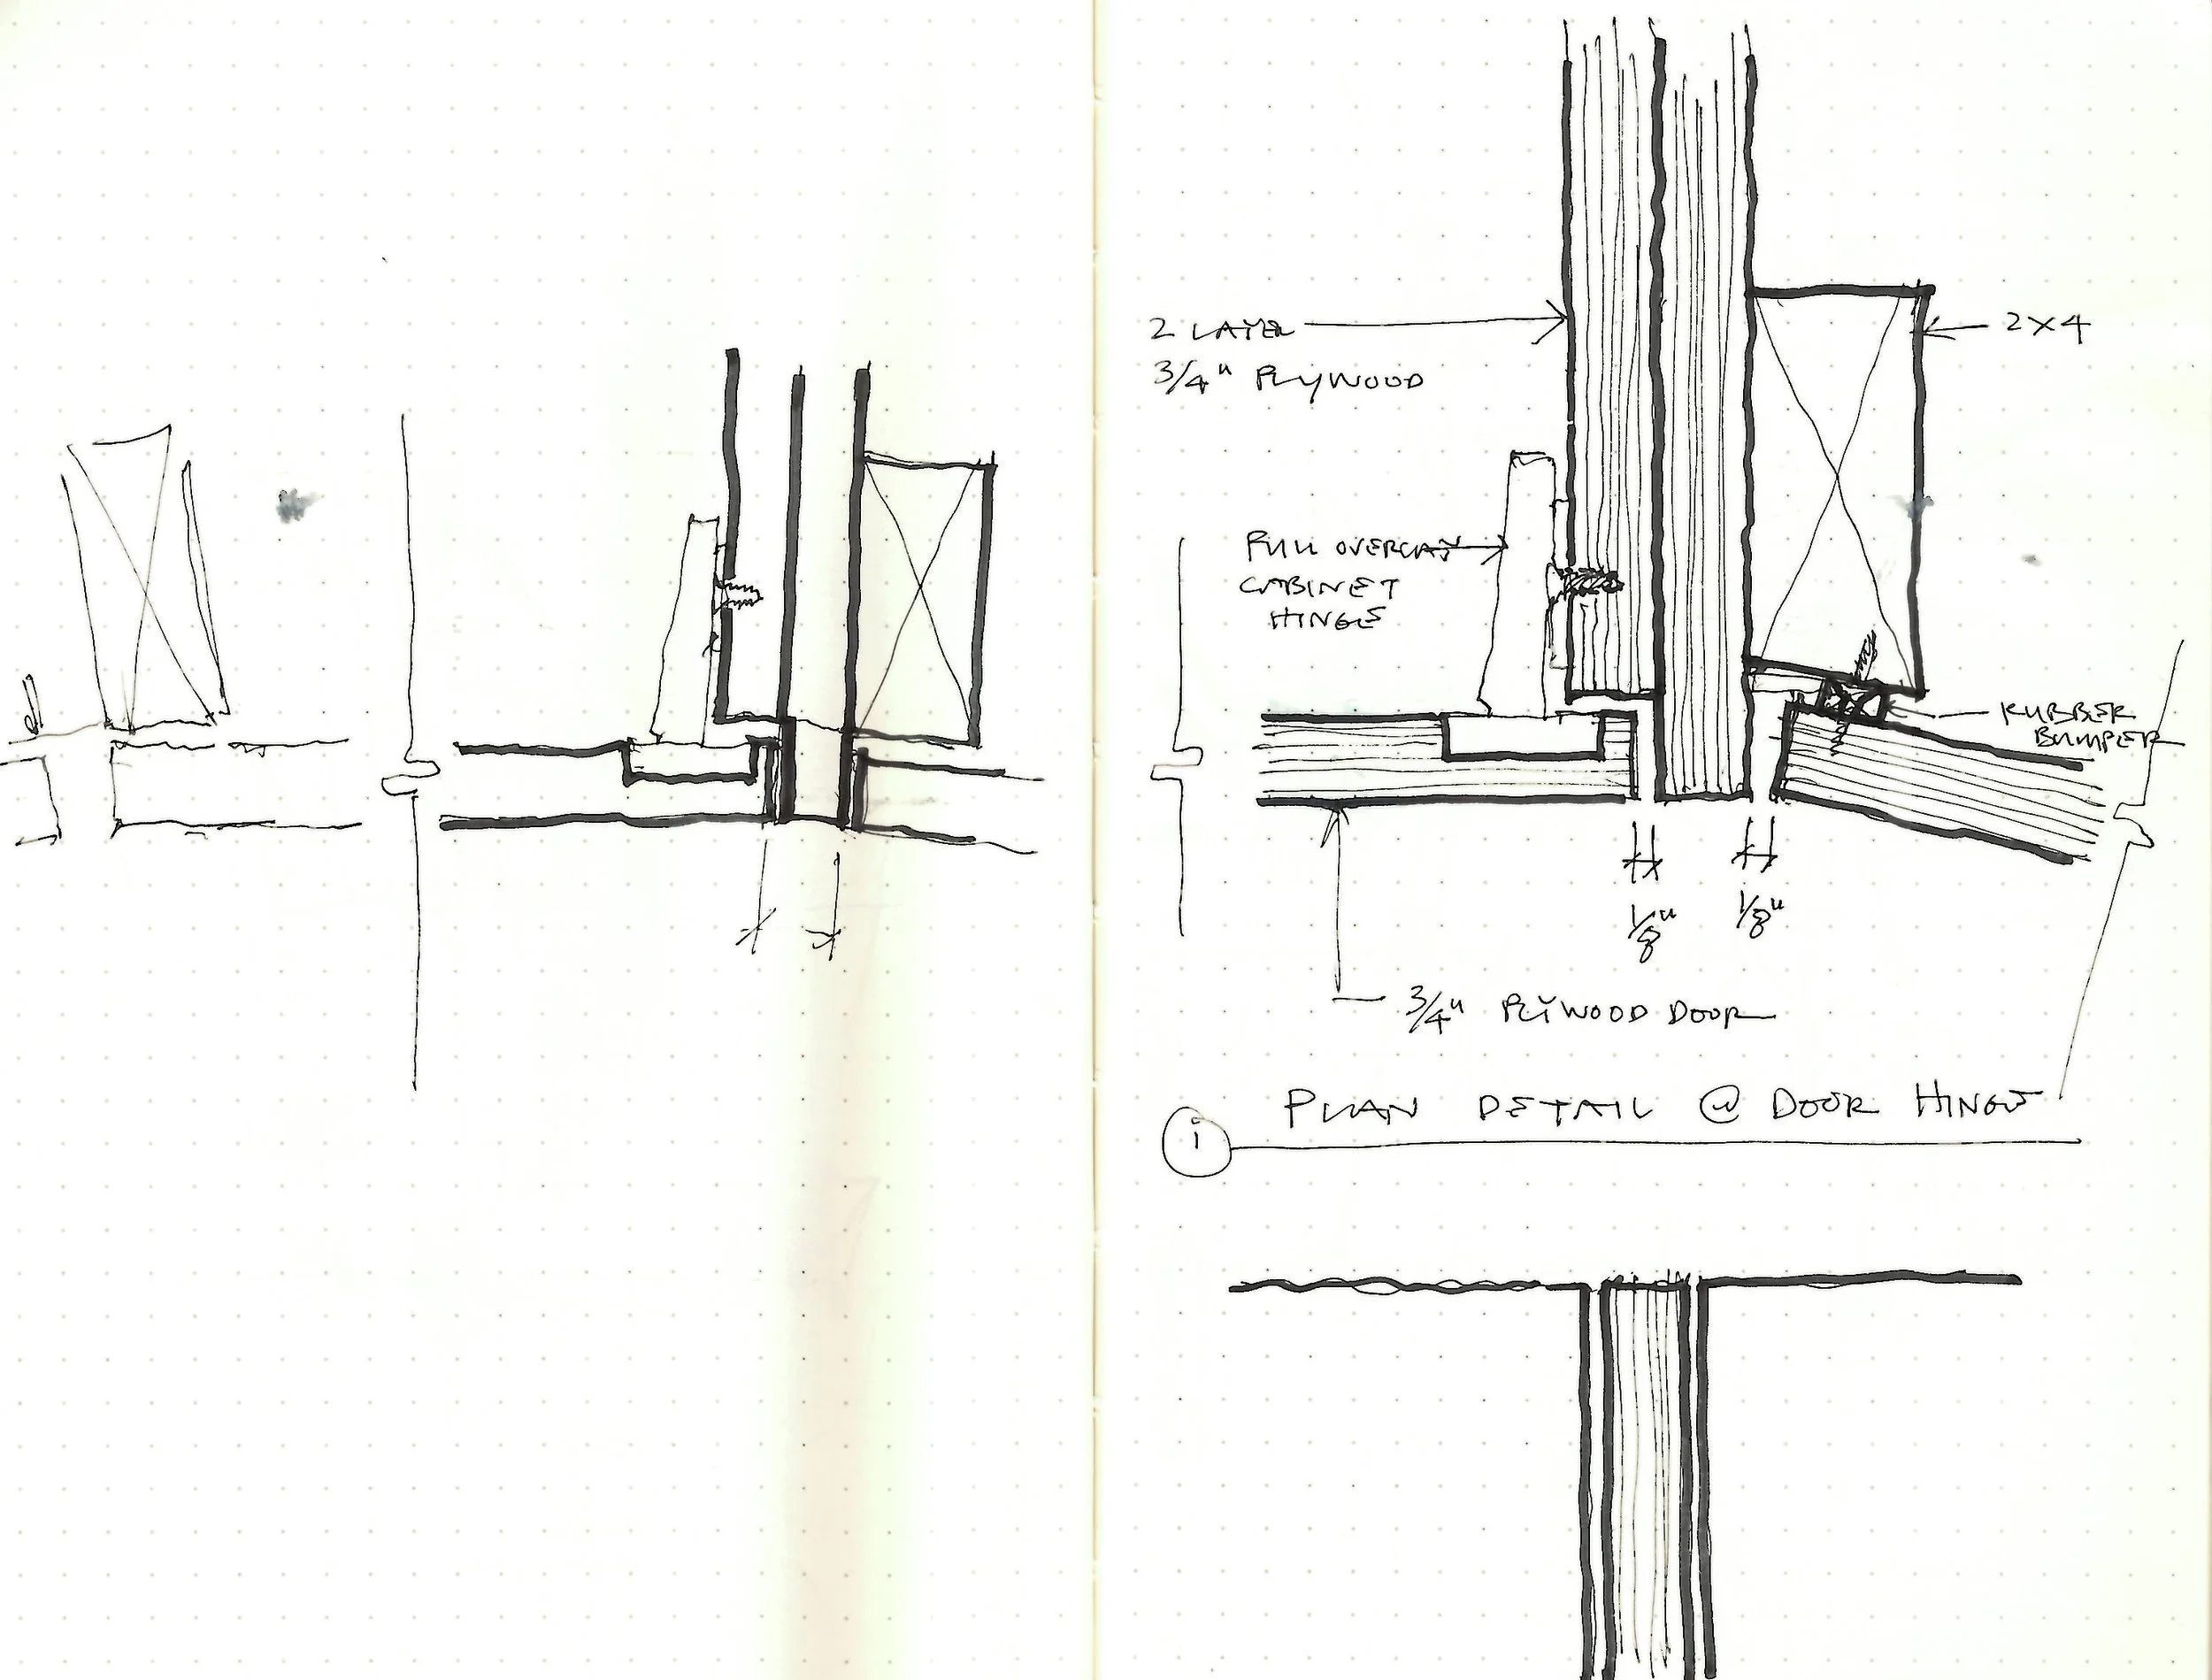 2 LAYER
3/4" PLYWOOD
2X4
FULL OVERLAY
CABINET
HINGE
RUBBER
BUMPER
1/8" 1/8"
3/4" PLYWOOD DOOR
1 PLAN DETAIL @ DOOR HINGE